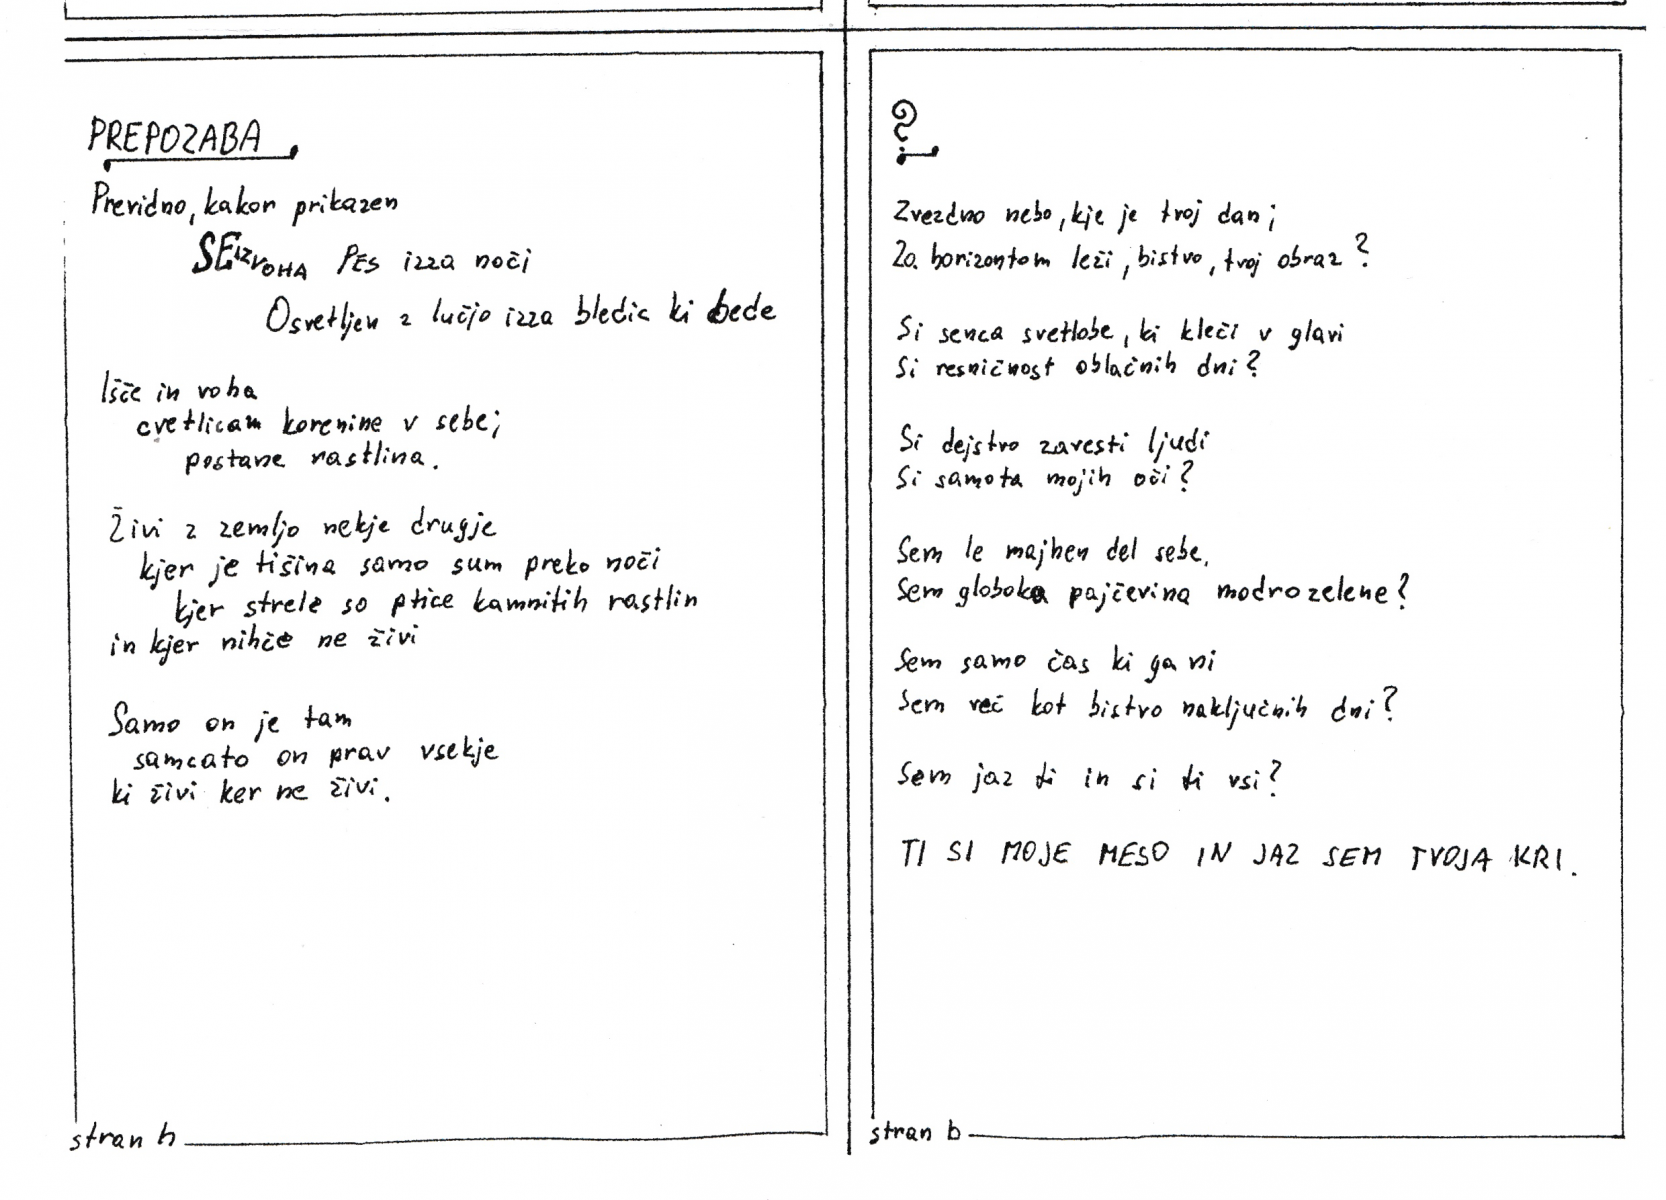 PREPOZABA
Previdno, kakor prikazen
SE IZVOHA PES izza noči
Osvetljen z lučjo izza bledic ki bede
Išče in voha
cvetlicam korenine v sebe;
postane rastlina.
Živi z zemljo nekje drugje
kjer je tišina samo šum preko noči
kjer strele so ptice kamnitih rastlin
in kjer nihče ne živi
Samo on je tam
samcato on prav vsekje
ki živi ker ne živi.
stran h
?
Zvezdno nebo, kje je tvoj dan;
Za horizontom leži, bistvo, tvoj obraz?
Si senca svetlobe, ki kleči v glavi
Si resničnost oblačnih dni?
Si dejstvo zavesti ljudi
Si samota mojih oči?
Sem le majhen del sebe,
Sem globoka pajčevina modrozelene?
Sem samo čas ki ga ni
Sem več kot bistvo naključnih dni?
Sem jaz ti in si ti vsi?
TI SI MOJE MESO IN JAZ SEM TVOJA KRI.
stran b